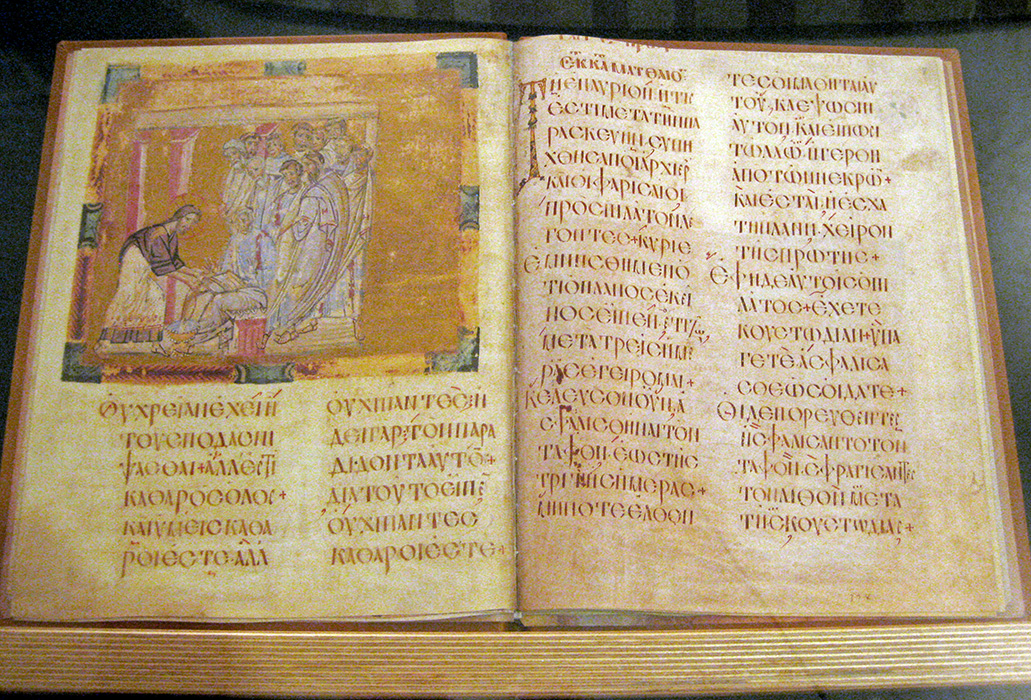 ΟΥΧΡΕΙΑΝΕΧΕΙΗ
ΤΟΥϹΠΟΔΑϹΝΙ
ΨΑϹΘΑΙ·ΑΛΛΕϹΤΙ
ΚΑΘΑΡΟϹΟΛΟϹ+
ΚΑΙΥΜΕΙϹΚΑΘΑ
ΡΟΙΕϹΤΕ·ΑΛΛ
ΟΥΧΙΠΑΝΤΕϹ·Η
ΔΕΙΓΑΡΤΟΝΠΑΡΑ
ΔΙΔΟΝΤΑΑΥΤΟ+
ΔΙΑΤΟΥΤΟΕΙΠΕ
ΟΥΧΙΠΑΝΤΕϹ
ΚΑΘΑΡΟΙΕϹΤΕ+
ΤΗΕΠΑΥΡΙΟΝΗΤΙϹ
ΕϹΤΙΜΕΤΑΤΗΝΠΑ
ΡΑϹΚΕΥΗΝ·ϹΥΝΗ
ΧΘΗϹΑΝΟΙΑΡΧΙΕΡ
ΚΑΙΟΙΦΑΡΙϹΑΙΟΙ
ΠΡΟϹΠΙΛΑΤΟΝΛΕ
ΓΟΝΤΕϹ+ΚΥΡΙΕ
ΕΜΝΗϹΘΗΜΕΝΟ
ΤΙΟΠΛΑΝΟϹΕΚΕΙ
ΝΟϹΕΙΠΕΝΕΤΙΖΩ
ΜΕΤΑΤΡΕΙϹΗΜΕ
ΡΑϹΕΓΕΙΡΟΜΑΙ+
ΚΕΛΕΥϹΟΝΟΥΝΑ
ϹΦΑΛΙϹΘΗΝΑΙΤΟΝ
ΤΑΦΟΝ·ΕΩϹΤΗϹ
ΤΡΙΤΗϹΗΜΕΡΑϹ+
ΜΗΠΟΤΕΕΛΘΟΝ
ΤΕϹΟΙΜΑΘΗΤΑΙΑΥ
ΤΟΥ·ΚΛΕΨΩϹΙΝ
ΑΥΤΟΝ·ΚΑΙΕΙΠΩΝ
ΤΩΛΑΩ·ΗΓΕΡΘΗ
ΑΠΟΤΩΝΝΕΚΡΩ+
ΚΑΙΕϹΤΑΙΗΕϹΧΑ
ΤΗΠΛΑΝΗ·ΧΕΙΡΩΝ
ΤΗϹΠΡΩΤΗϹ+
ΕΦΗΔΕΑΥΤΟΙϹΟΠΙ
ΛΑΤΟϹ+ΕΧΕΤΕ
ΚΟΥϹΤΩΔΙΑΝ+ΥΠΑ
ΓΕΤΕΑϹΦΑΛΙϹΑ
ϹΘΕΩϹΟΙΔΑΤΕ+
ΟΙΔΕΠΟΡΕΥΘΕΝΤΕϹ
ΗϹΦΑΛΙϹΑΝΤΟΤΟΝ
ΤΑΦΟΝ·ϹΦΡΑΓΙϹΑΝΤΕϹ
ΤΟΝΛΙΘΟΝΜΕΤΑ
ΤΗϹΚΟΥϹΤΩΔΙΑϹ+